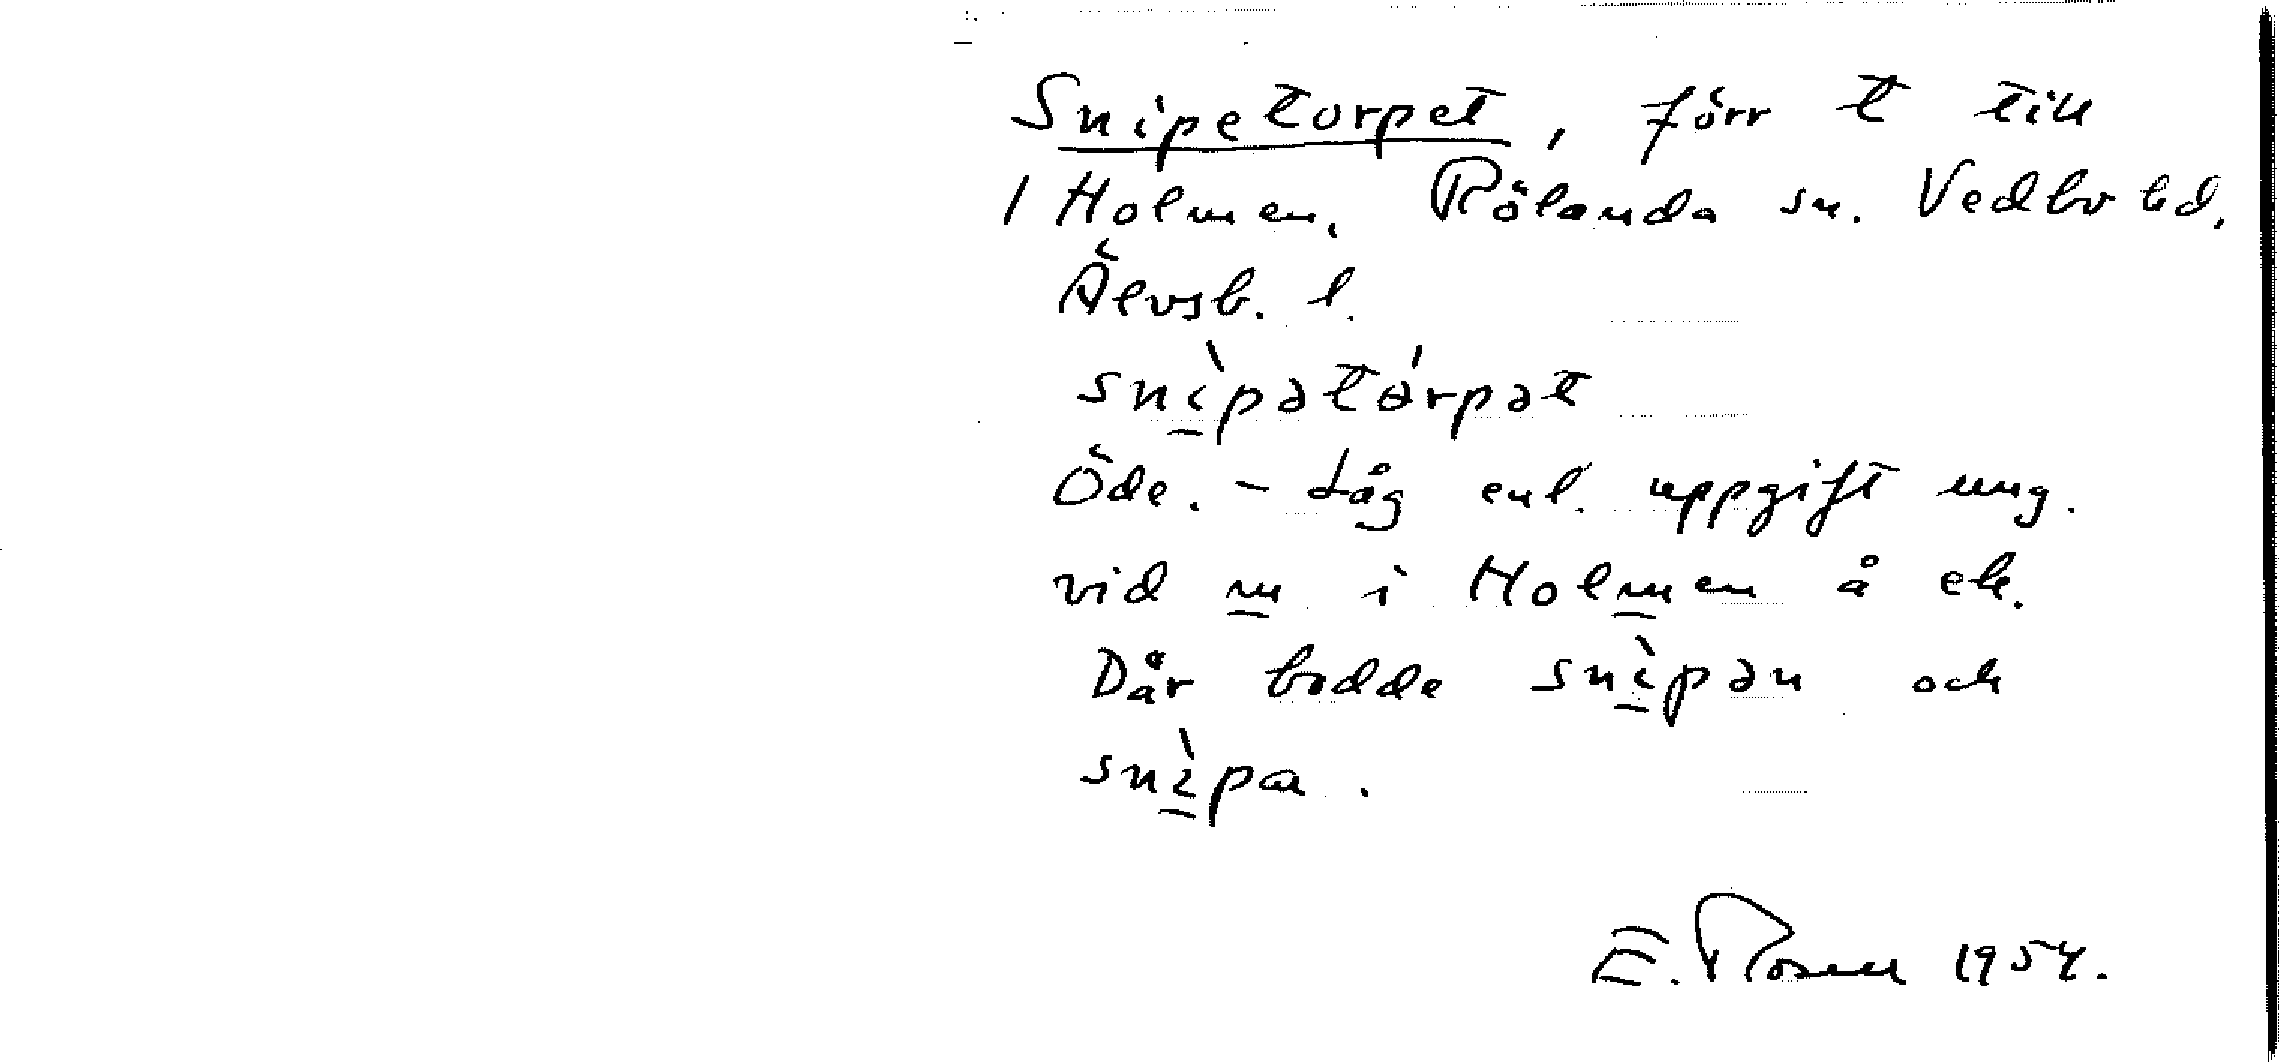 Snipetorpet, förr t till
1 Holmen, Rölanda sn. Vedbo hd,
Älvsb. l.
snìpətórpət
Öde. – Låg enl. uppgift ung.
vid m i Holmen å ek.
Där bodde snìpən och
snìpa.
E. Rosell 1954.